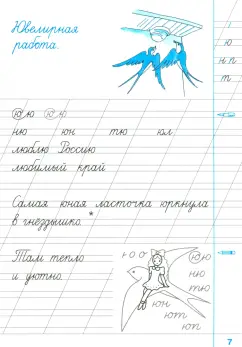 Ювелирная
работа.
ю
н п
т
ю ю
ню юн тю юл
люблю Россию
любимый край
Самая юная ласточка юркнула
в гнёздышко.*
Там тепло
и уютно.
ю о о
ю
ню
тю
юн
ют
юп
7